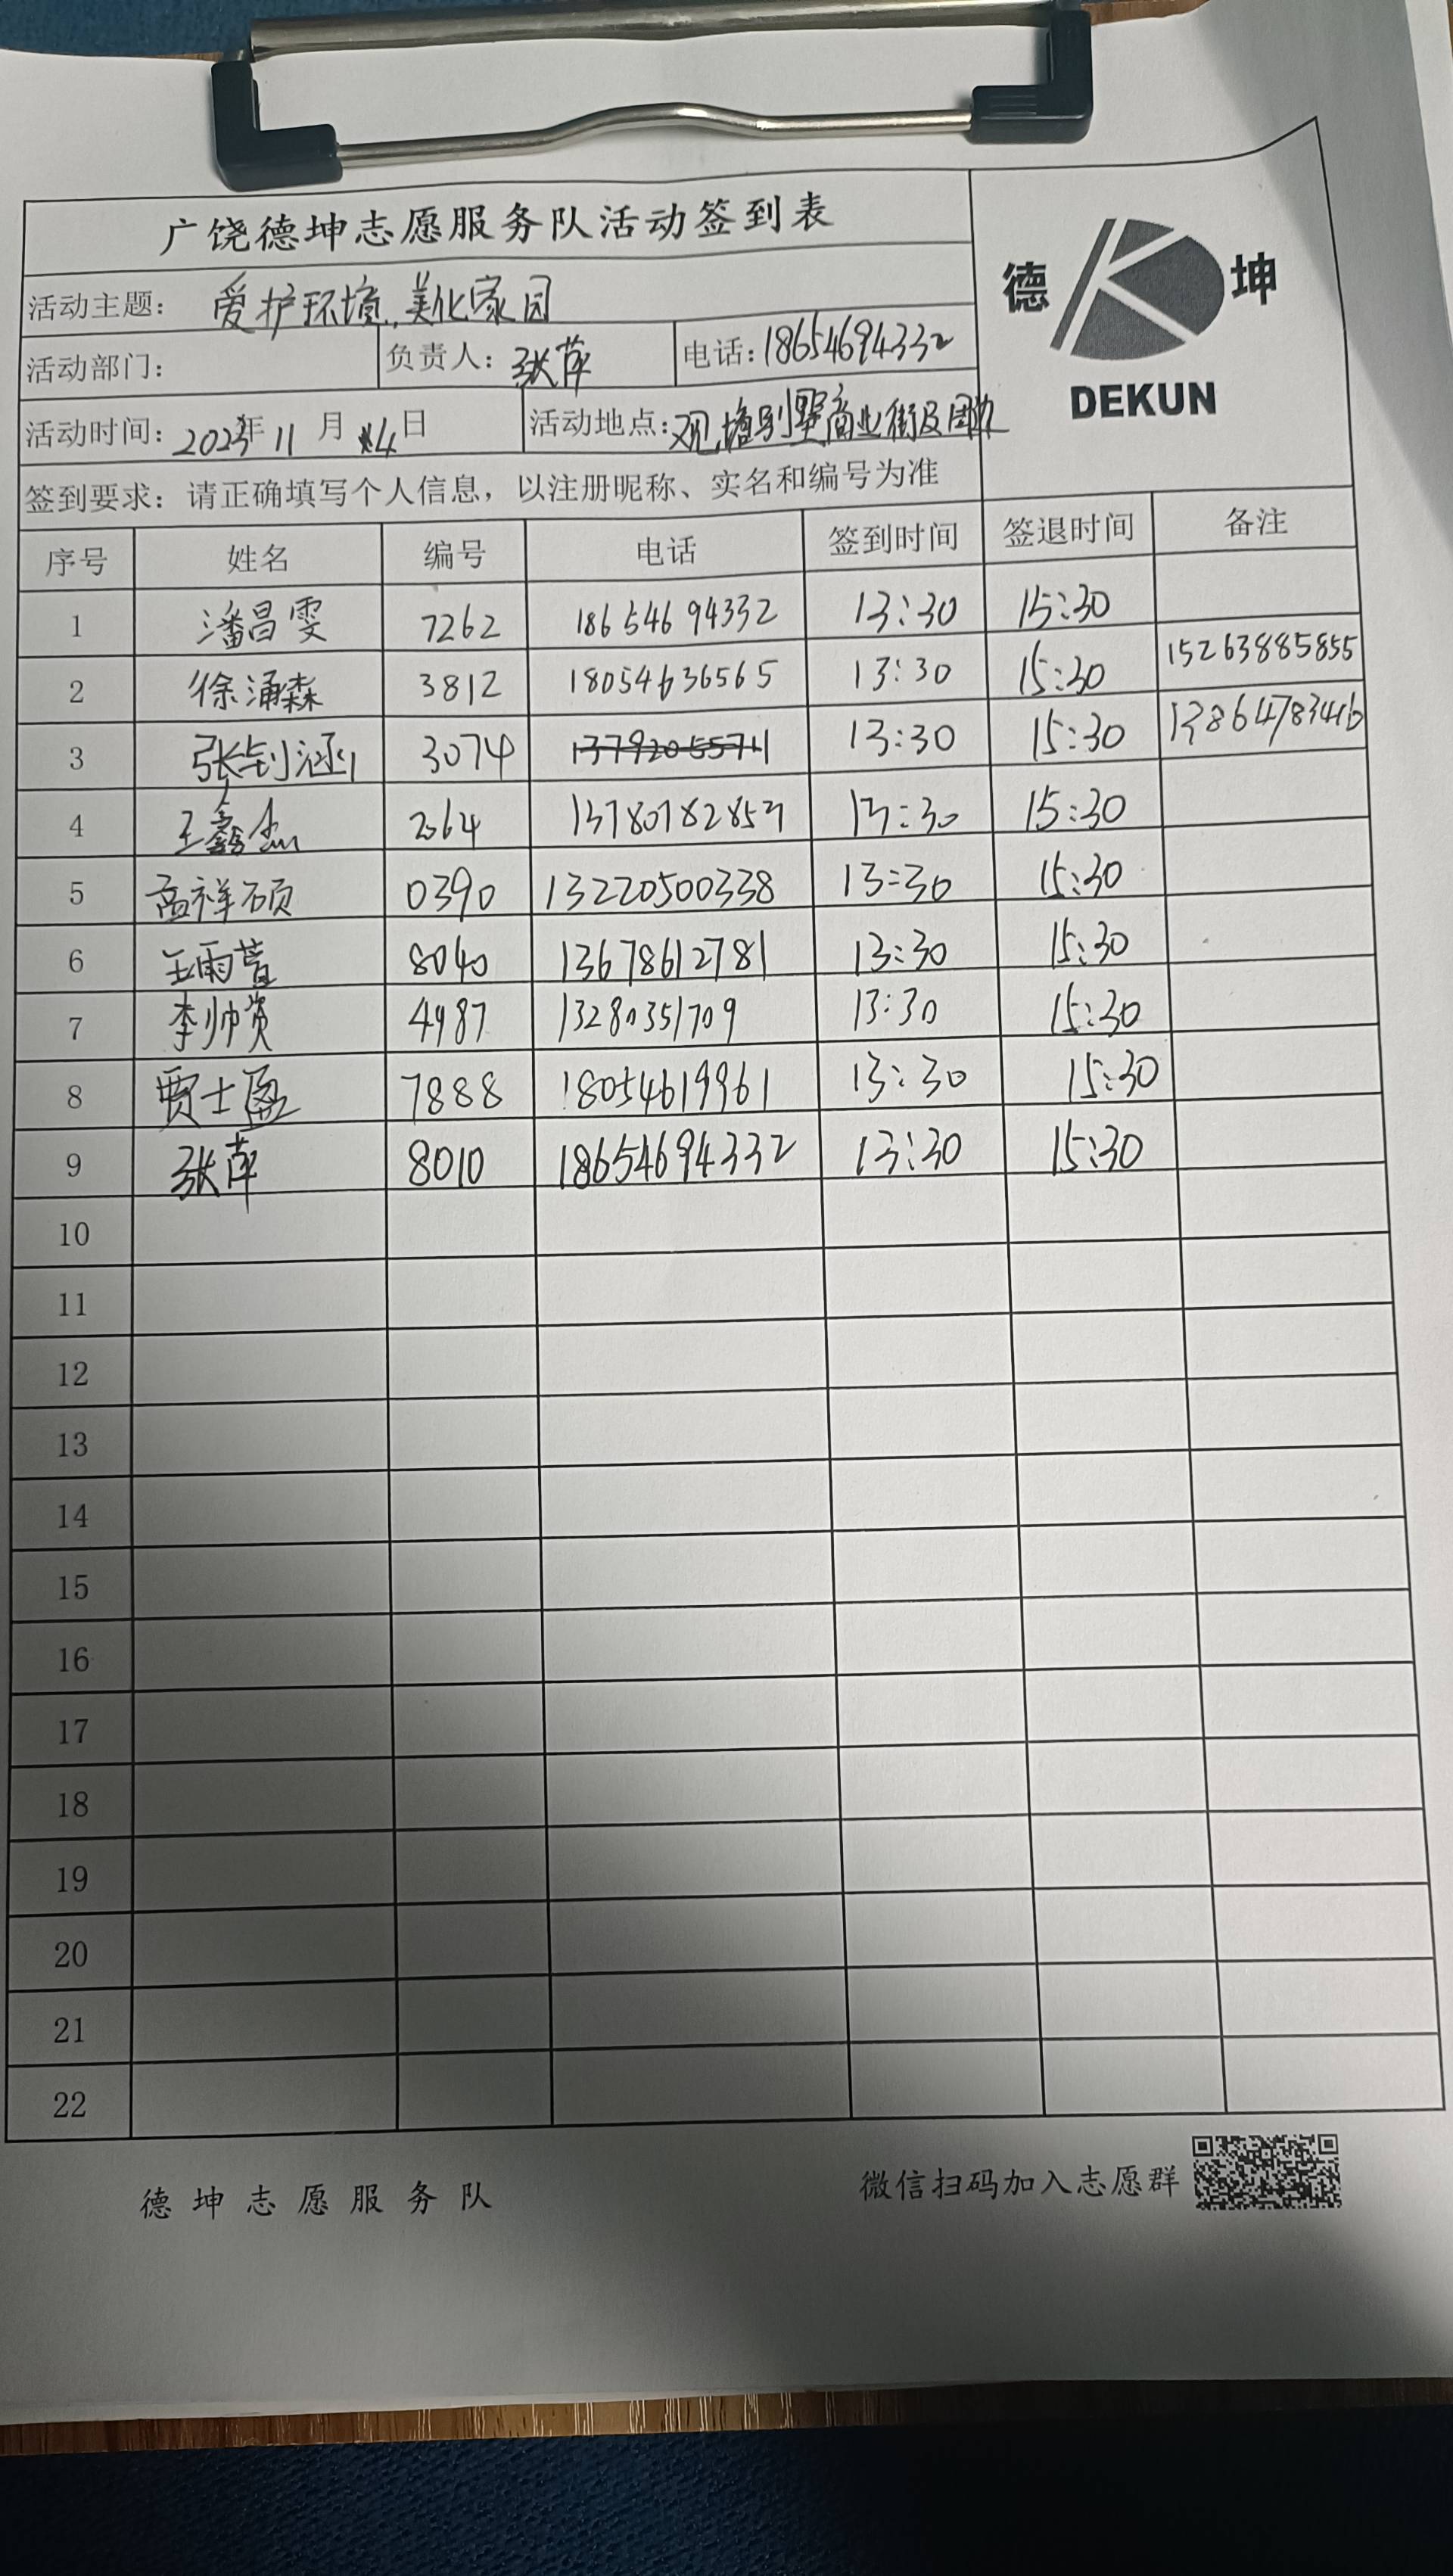 广饶德坤志愿服务队活动签到表
德 坤
DEKUN
活动主题： 爱护环境，美化家园
活动部门： 负责人：张萍 电话：18654694332
活动时间：2023年 11 月 4日 活动地点：观塘别墅商业街及周边
签到要求：请正确填写个人信息，以注册昵称、实名和编号为准
序号 姓名 编号 电话 签到时间 签退时间 备注
1 潘昌雯 7262 18654694332 13:30 15:30
2 徐涌森 3812 18054636565 13:30 15:30 15263885855
3 张钊涵 3074 13792055711 13:30 15:30 13864783416
4 王鑫 2064 13780782857 13:30 15:30
5 孟祥硕 0390 13220500338 13:30 15:30
6 王雨萱 8040 13678612781 13:30 15:30
7 李帅 4987 13280351709 13:30 15:30
8 贾士盈 7888 18054619961 13:30 15:30
9 张萍 8010 18654694332 13:30 15:30
10
11
12
13
14
15
16
17
18
19
20
21
22
德坤志愿服务队 微信扫码加入志愿群